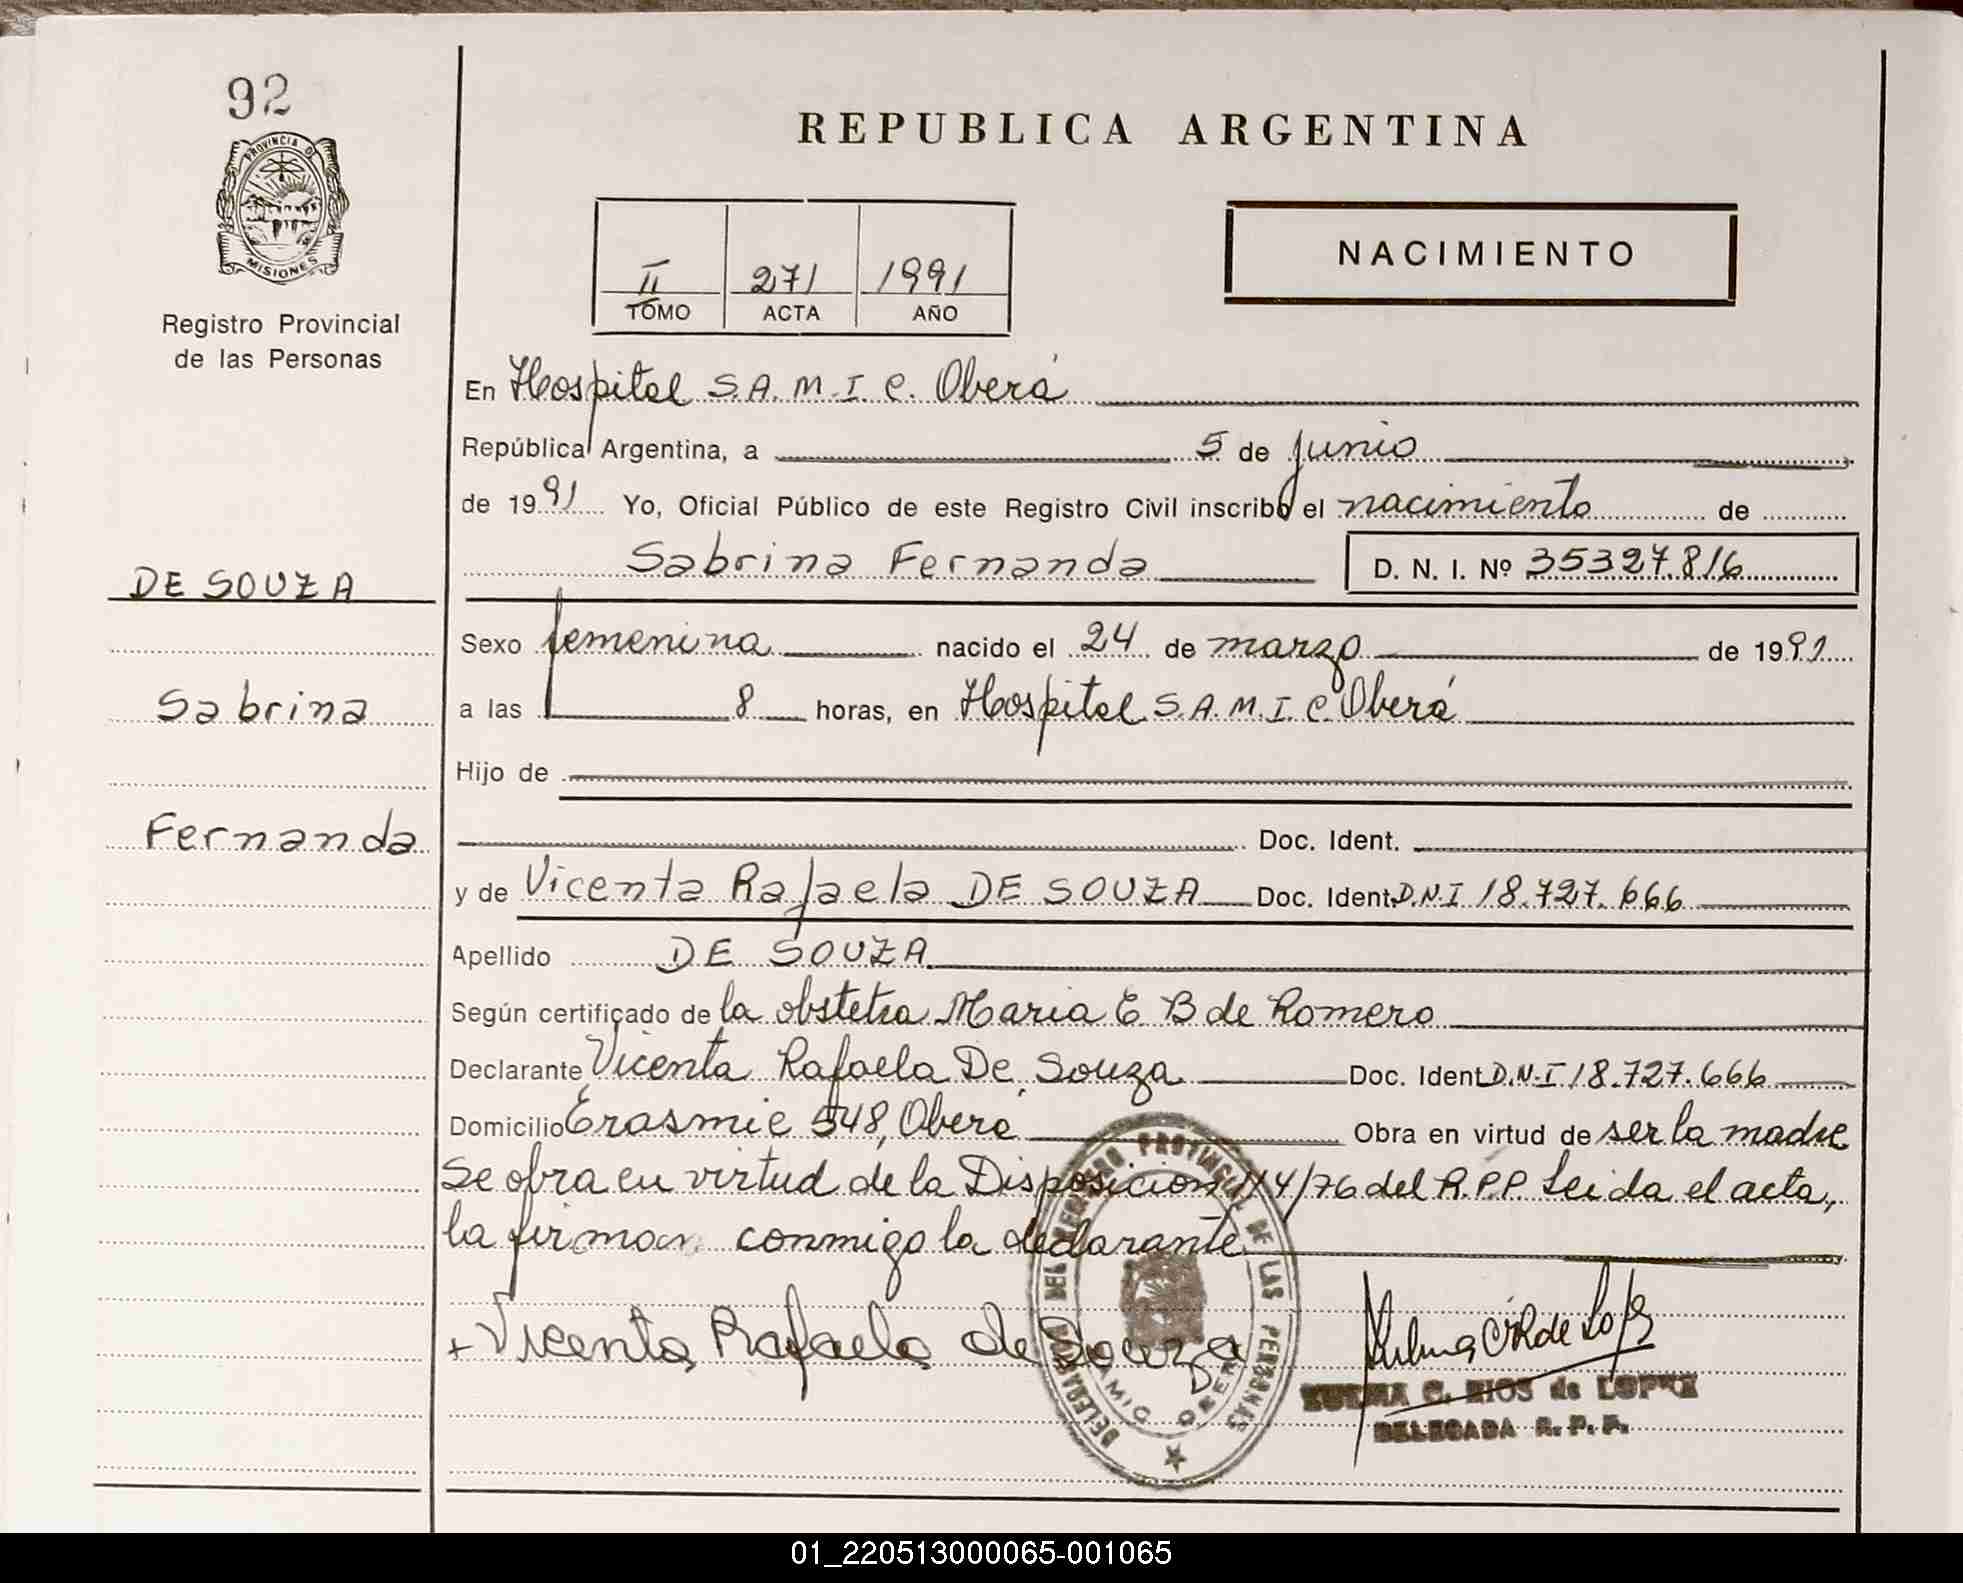 92
PROVINCIA DE
MISIONES
Registro Provincial
de las Personas
REPUBLICA ARGENTINA
II 271 1991
TOMO ACTA AÑO
NACIMIENTO
En Hospital S.A.M.I.C. Oberá
República Argentina, a 5 de junio
de 1991 Yo, Oficial Público de este Registro Civil inscribo el nacimiento de
Sabrina Fernanda D. N. I. Nº 35327.816
DE SOUZA
Sabrina
Fernanda
Sexo femenina nacido el 24 de marzo de 1991
a las 8 horas, en Hospital S.A.M.I.C. Oberá
Hijo de
Doc. Ident.
y de Vicenta Rafaela DE SOUZA Doc. Ident. D.N.I 18.727.666
Apellido DE SOUZA
Según certificado de la obstetra Maria E B de Romero
Declarante Vicenta Rafaela De Souza Doc. Ident. D.N.I 18.727.666
Domicilio Erasmie 548, Oberá Obra en virtud de ser la madre
Se obra en virtud de la Disposición 114/76 del R.P.P. Leida el acta,
la firman conmigo la declarante
+ Vicenta Rafaela de Souza
REGISTRO PROVINCIAL DE LAS PERSONAS
ZULMA C. RIOS de LOPEZ
DELEGADA R. P. P.
01_220513000065-001065